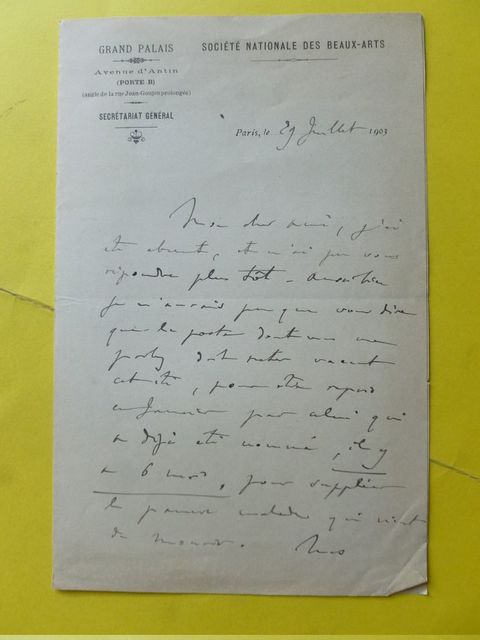 GRAND PALAIS
Avenue d'Antin
(PORTE B)
(angle de la rue Jean-Goujon prolongée)
SECRÉTARIAT GÉNÉRAL
SOCIÉTÉ NATIONALE DES BEAUX-ARTS
Paris, le 29 Juillet 1903
Mon cher ami, j'ai
été absent, et n'ai pu vous
répondre plus tôt - Aussi bien
je n'aurais pu que vous dire
que le poste dont vous me
parlez doit rester vacant
cet été, pour être repris
en Janvier par celui qui
a déjà été nommé, il y
a 6 mois, pour suppléer
le pauvre malade qui vient
de mourir.